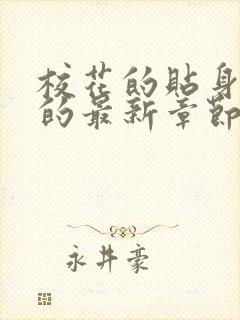 校花的貼身
的最新章節
永井豪